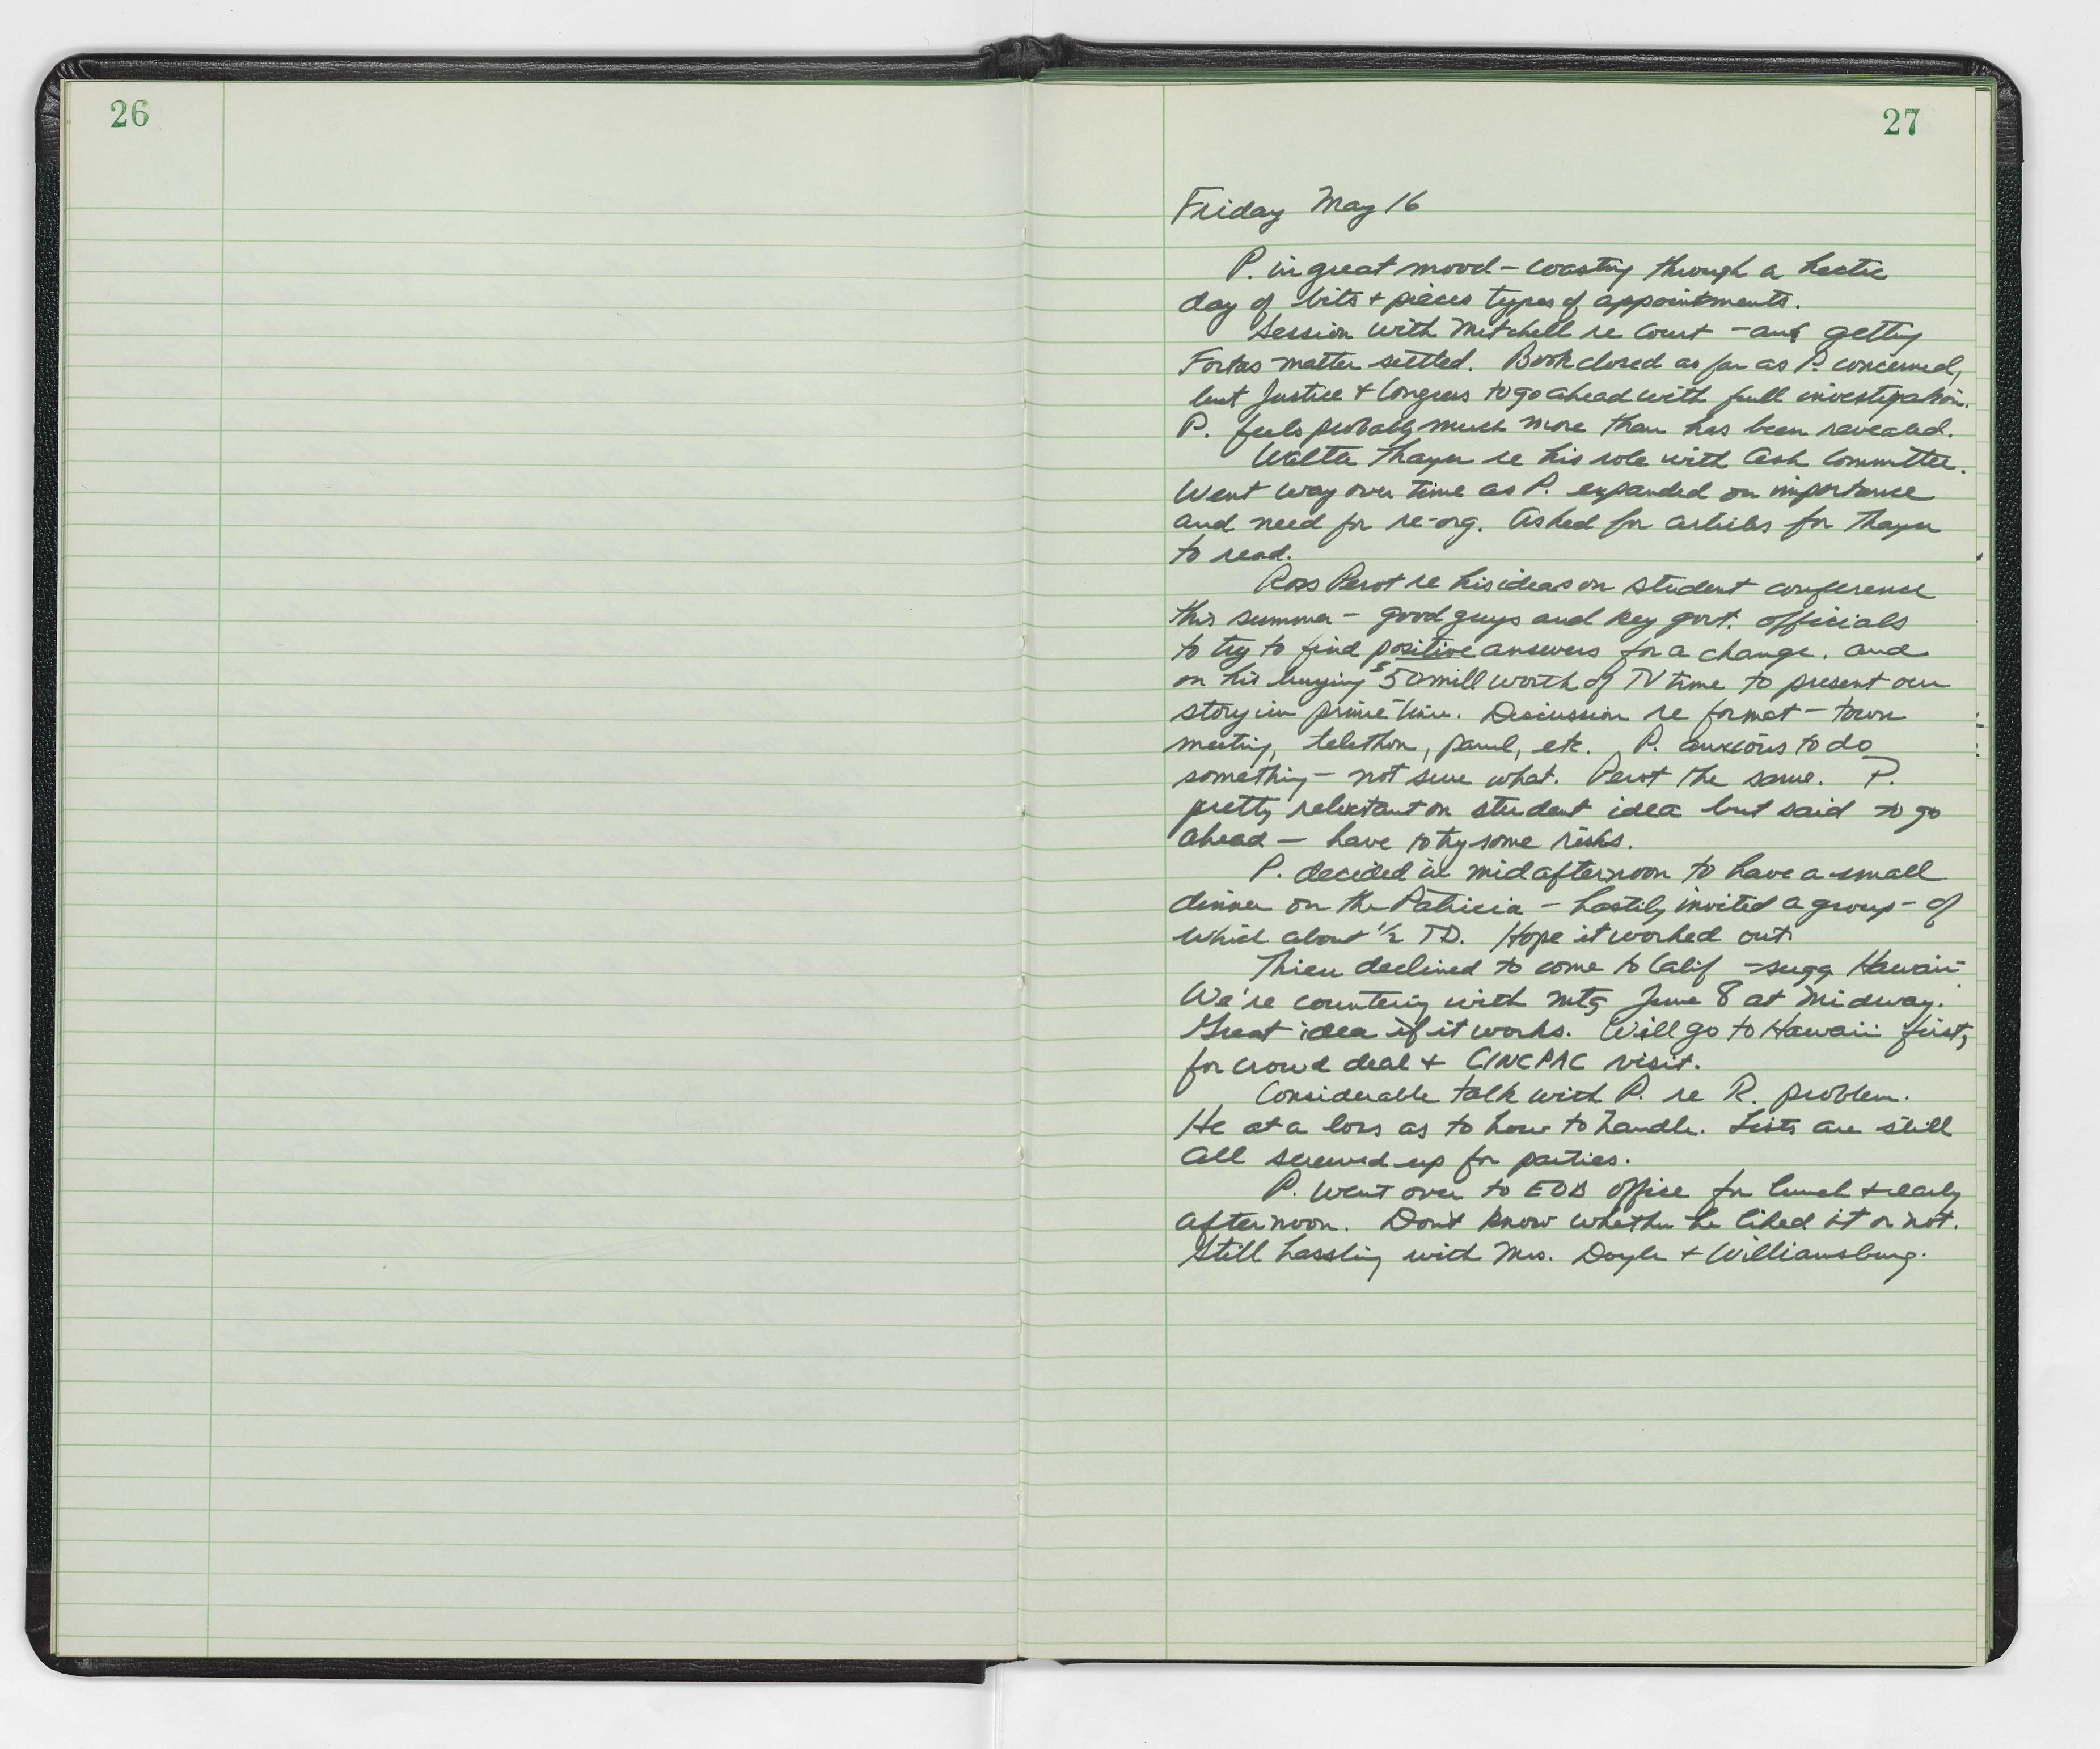 26
27
Friday May 16
P. in great mood – coasting through a hectic
day of bits + pieces types of appointments.
Session with Mitchell re Court – and getting
Fortas matter settled. Book closed as far as P. concerned,
but Justice + Congress to go ahead with full investigation.
P. feels probably much more than has been revealed.
Walter Thayer re his role with Ash Committee.
Went way over time as P. expanded on importance
and need for re-org. Asked for articles for Thayer
to read.
Ross Perot re his ideas on student conference
this summer – good guys and key govt. officials
to try to find positive answers for a change. and
on his buying $50 mill worth of TV time to present our
story in prime time. Discussion re format – town
meeting, telethon, panel, etc. P. anxious to do
something – not sure what. Perot the same. P.
pretty reluctant on student idea but said to go
ahead – have to try some risks.
P. decided in mid afternoon to have a small
dinner on the Patricia – hastily invited a group – of
which about 1/2 TD. Hope it worked out.
Thieu declined to come to Calif – sugg Hawaii –
We're countering with mtg June 8 at Midway.
Great idea if it works. Will go to Hawaii first,
for crowd deal + CINCPAC visit.
Considerable talk with P. re R. problem.
He at a loss as to how to handle. Lists are still
all screwed up for parties.
P. went over to EOB office for lunch + early
afternoon. Don't know whether he liked it or not.
Still hassling with Mrs. Doyle + Williamsburg.